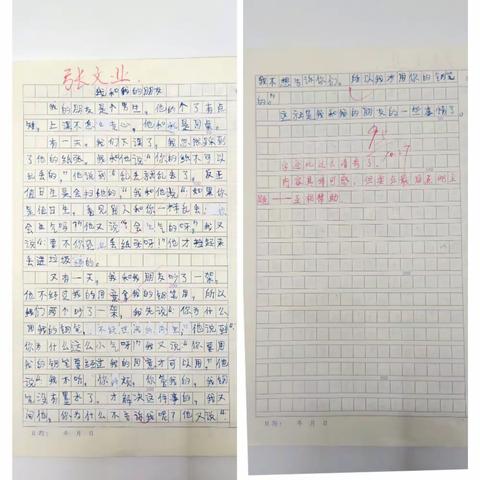 张文业
我和我的朋友
我的朋友是个男生,他的个子有点
矮,上课不怎么专心,他和我是同桌。
有一天,我们下课了,我忽然踩到
了他的纸张,我和他说:“你的纸不可以
乱丢的。”他说到“乱丢就乱丢了,反正
值日生是会扫的。”我和他说“如果你
是值日生,看见别人和你一样乱丢,
会生气吗?”他又说“会生气的呀。”我又
说“要不你
丢进垃圾桶的。
又有一天,我和我朋友吵了一架,
他不经过我的同意拿我的钢笔用,所以
我们两个吵了一架,我先说“你为什么
用我的钢笔,不经过我的同意”他说到“
你为什么这么小气呀!”我又说“你要用
我的钢笔要经过我的同意才可以用。”他
说“我不听,你
笔没有墨水了,才解决这件事的,我又
问他,你为什么不告诉我呢?他又说“
日期: 年 月 日
我不想告诉你们,所以我才用你的钢笔
的。”
这就是我和我的朋友的一些事情了。
10.27
内容具体可感,但要在最后点明主
题——互相帮助
日期: 年 月 日